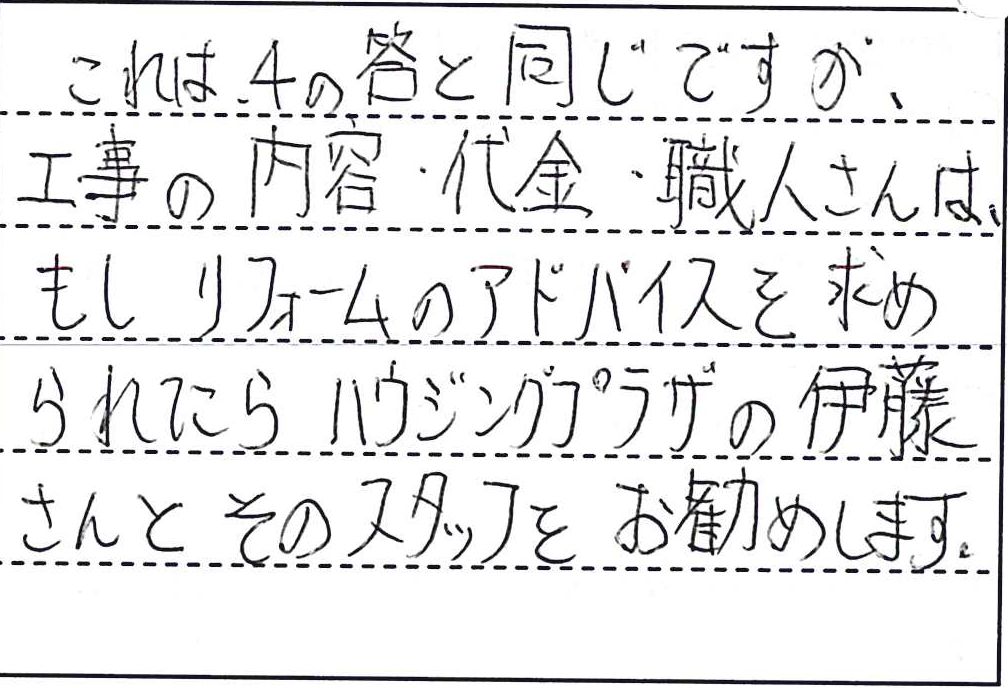 これは、4の答と同じですが、
工事の内容・代金・職人さんは、
もしリフォームのアドバイスを求め
られたら ハウジングプラザの伊藤
さんと そのスタッフを お勧めします。